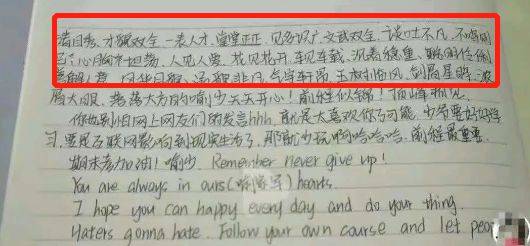 清目秀、才貌双全、一表人才、堂堂正正、见多识广、文武双全、谈吐不凡、不
心胸坦荡、人见人爱、花见花开、车见车载、沉着稳重、聪明伶俐
风华月貌、气宇轩昂、玉树临风、剑眉星眸、浓
眉大眼、落落大方的喻少天天开心!前程似锦!
你也别怕网上网友们的发言hhh,就是太喜欢你了可能,少爷要好好学
习,要是互联网影响到现实生活了,那就少玩啊哈哈哈,前程最重要
期末考加油!喻少。Remember never give up!
You are always in ours( ) hearts.
I hope you can happy every day and do your thing.
Haters gonna hate. Follow your own course and let peo